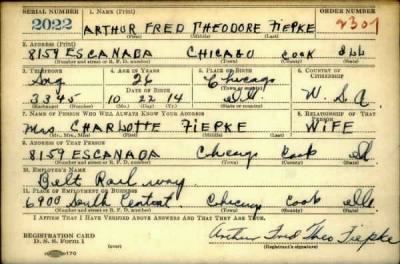 SERIAL NUMBER 1. NAME (Print) ORDER NUMBER
2022 ARTHUR FRED THEODORE FIEPKE 2307
(First) (Middle) (Last)
2. ADDRESS (Print)
8159 ESCANABA CHICAGO COOK ILL
(Number and street or R. F. D. number) (Town) (County) (State)
3. TELEPHONE 4. AGE IN YEARS 5. PLACE OF BIRTH 6. COUNTRY OF CITIZENSHIP
26 Chicago
DATE OF BIRTH (Town)
3345 10 22 14 Ill U. S. A.
(Exchange) (Number) (Mo.) (Day) (Yr.) (State or country)
7. NAME OF PERSON WHO WILL ALWAYS KNOW YOUR ADDRESS 8. RELATIONSHIP OF THAT PERSON
Mrs CHARLOTTE FIEPKE WIFE
(Mr., Mrs., Miss) (First) (Middle) (Last)
9. ADDRESS OF THAT PERSON
8159 ESCANABA Chicago Cook Ill
(Number and street or R. F. D. number) (Town) (County) (State)
10. EMPLOYER'S NAME
Belt Railway
11. PLACE OF EMPLOYMENT OR BUSINESS
6900 South Central Chicago Cook Ills
(Number and street or R. F. D. number) (Town) (County) (State)
I AFFIRM THAT I HAVE VERIFIED ABOVE ANSWERS AND THAT THEY ARE TRUE.
REGISTRATION CARD
D. S. S. Form 1 Arthur Fred Theo Fiepke
(Registrant's signature)